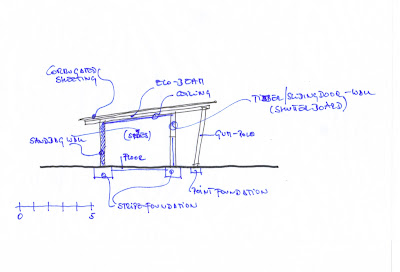 CORRUGATED/
SHEETING
ECO-BEAM
CEILING
TIMBER/SLIDINGDOOR-WALL
(SHUTERBOARD)
SANDBAG WALL
GUM-POLE
FLOOR
STRIP FOUNDATION
POINT FOUNDATION
0 5